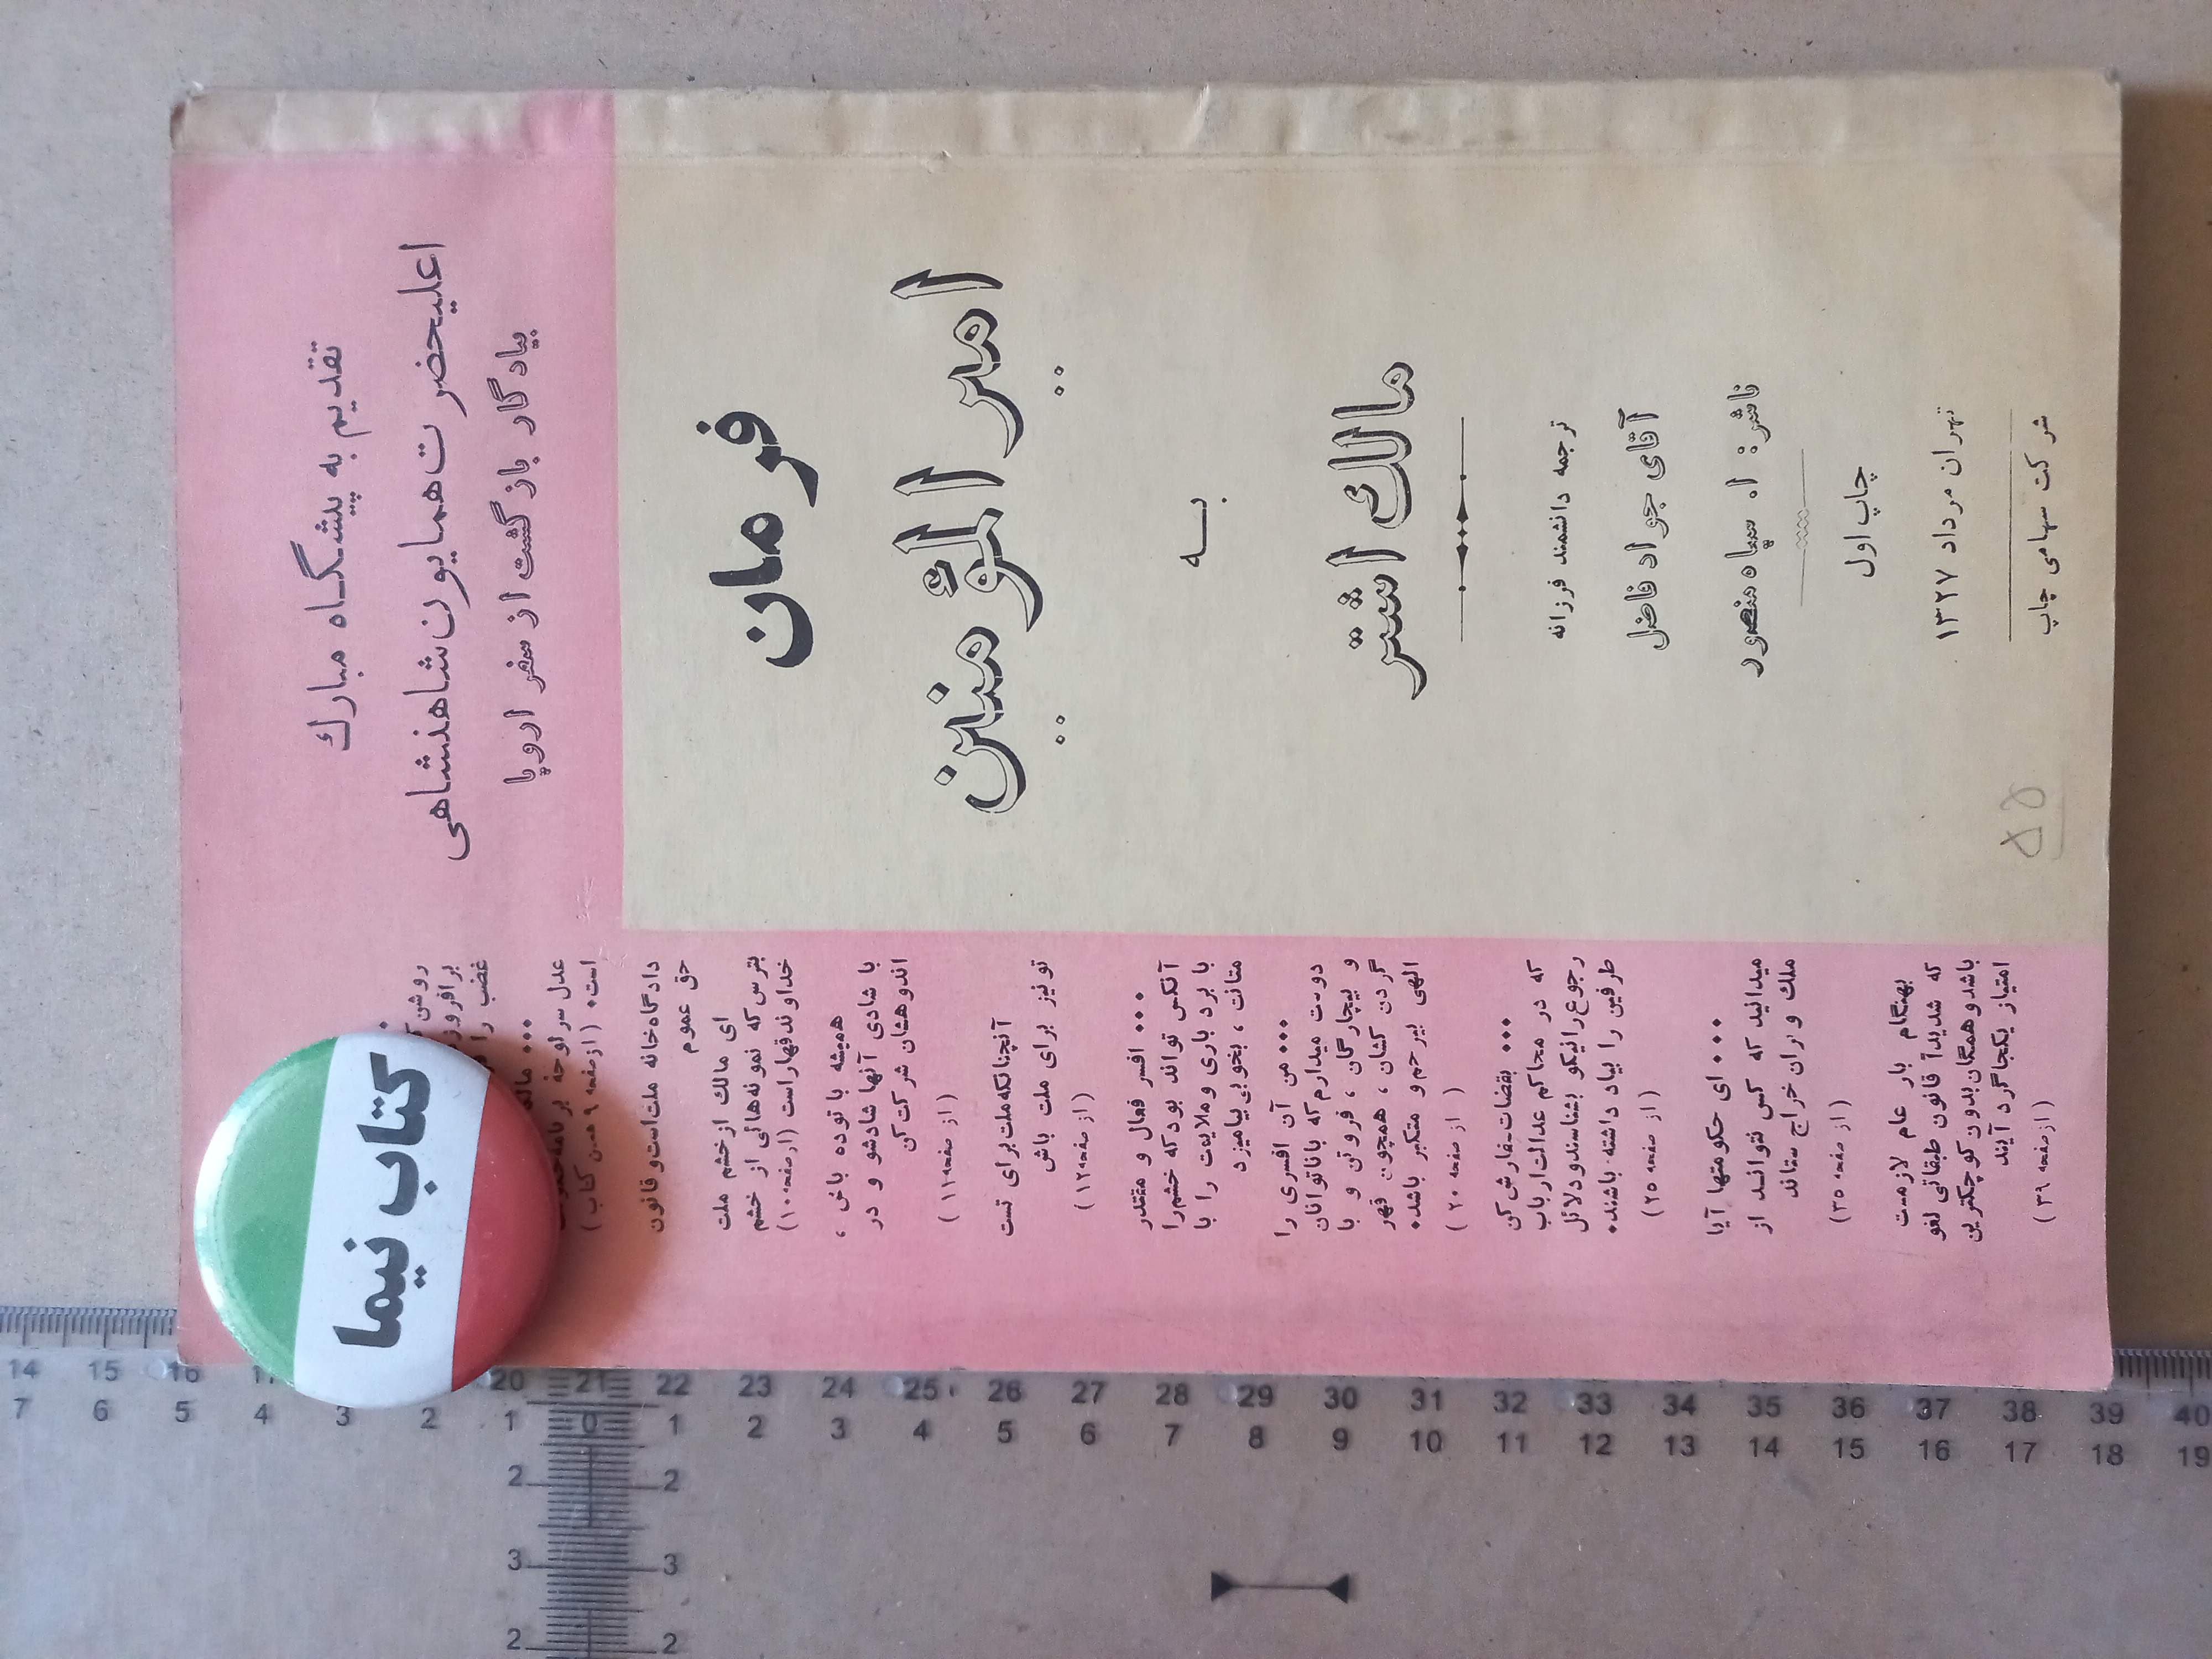 تقدیم به پیشگاه مبارك
اعلیحضرت همایون شاهنشاهی
بیادگار بازگشت از سفر اروپا
فرمان
امیر المؤمنین
به
مالك اشتر
ترجمه دانشمند فرزانه
آقای جواد فاضل
ناشر: ا. سپاه منصور
چاپ اول
تهران مرداد ۱۳۲۷
شرکت سهامی چاپ
۵۵
روشن
برافروز
غضب را
••• مالك
عدل سرلوحه برنامه
است• (از صفحه ۹ همین کتاب)
دادگاه خانه ملت است و قانون
حق عموم
ای مالك از خشم ملت
بترس که نمونه‌هائی از خشم
خداوند قهار است (از صفحه ۱۰)
همیشه با توده باش ،
با شادی آنها شاد شو و در
اندوهشان شرکت کن
(از صفحه ۱۱)
آنچنانکه ملت برای تست
تو نیز برای ملت باش
(از صفحه ۱۲)
••• افسر فعال و مقتدر
آنکس تواند بود که خشم را
با برد باری و ملایمت را با
متانت ، بخوبی بیامیزد
••• من آن افسری را
دوست میدارم که با ناتوانان
و بیچارگان ، فروتن و با
گردن کشان ، همچون قهر
الهی بیرحم و متکبر باشد•
( از صفحه ۲۰ )
••• بقضات سفارش کن
که در محاکم عدالت ارباب
رجوع را نیکو بشناسند و دلائل
طرفین را بیاد داشته باشند•
(از صفحه ۲۵)
••• ای حکومتها آیا
میدانید که کس نتواند از
ملك ویران خراج ستاند
(از صفحه ۳۵)
بهنگام بار عام لازمست
که شدیداً قانون طبقاتی لغو
باشد و همگان بدون کوچکترین
امتیاز یکجا گرد آیند
(از صفحه ۳۹)
کتاب نیما
14 15 16 20 21 22 23 24 25 26 27 28 29 30 31 32 33 34 35 36 37 38 39 40
7 6 5 4 3 2 1 0 1 2 3 4 5 6 7 8 9 10 11 12 13 14 15 16 17 18 19
2 2
3 3
2 2